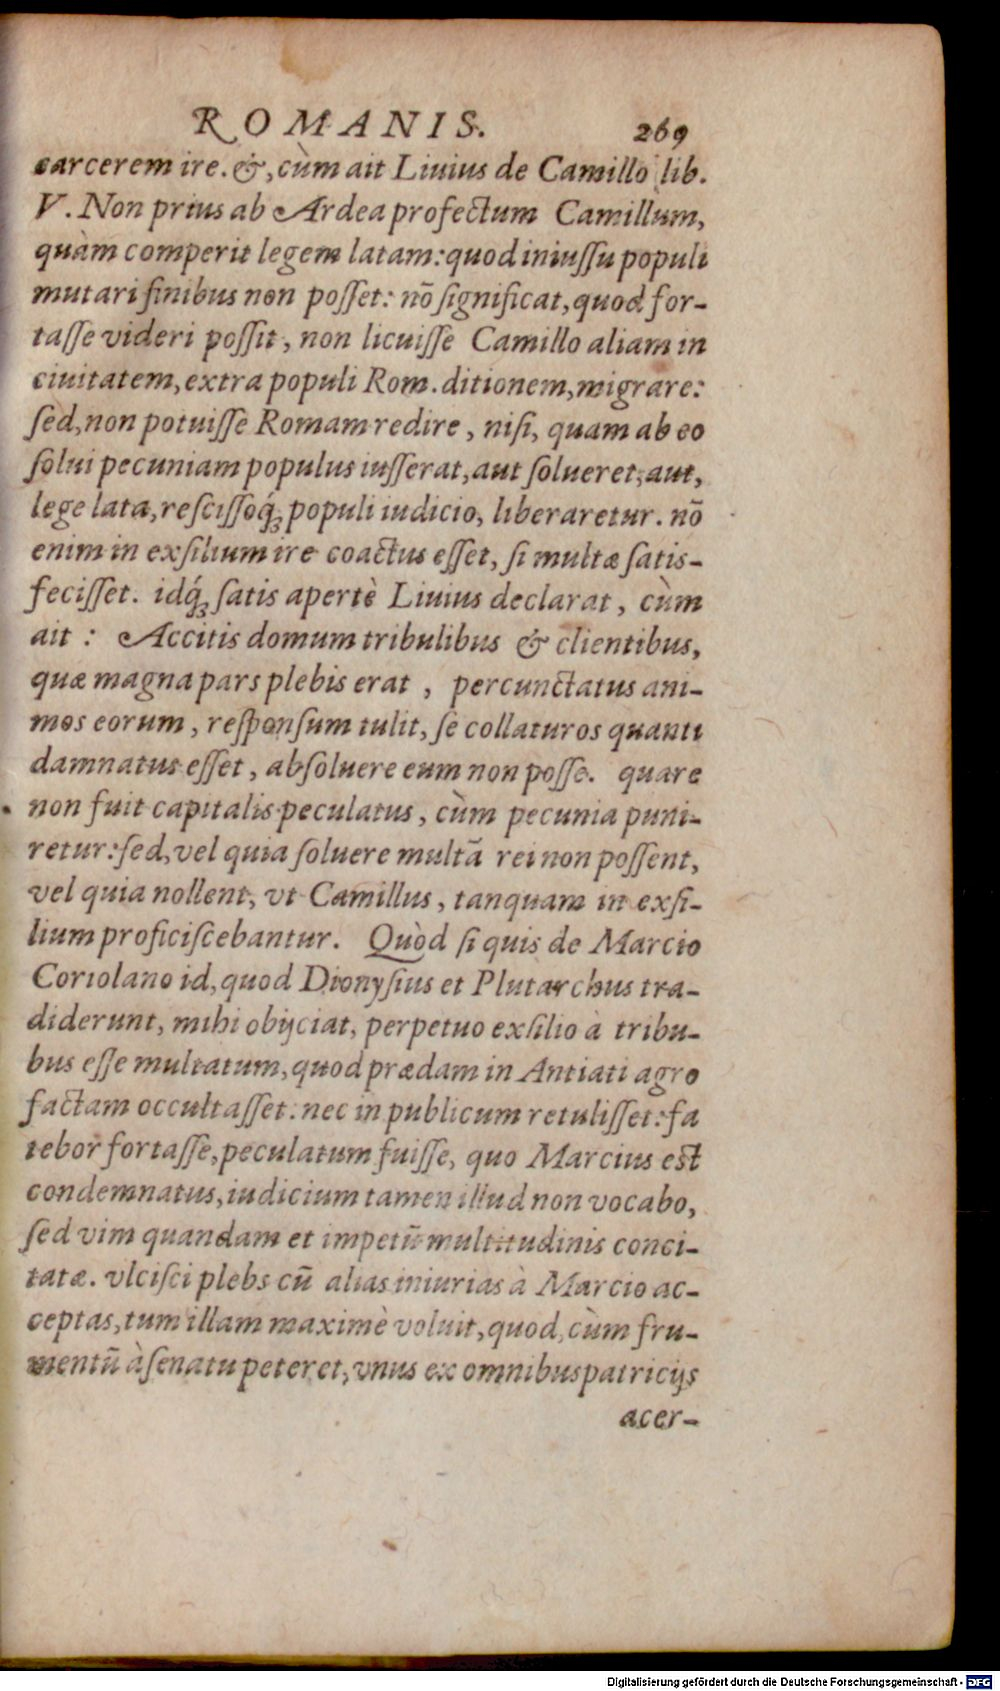 ROMANIS. 269
carcerem ire. &, cùm ait Liuius de Camillo lib.
V. Non prius ab Ardea profectum Camillum,
quàm comperit legem latam: quod iniussu populi
mutari finibus non posset: nō significat, quod for-
tasse videri possit, non licuisse Camillo aliam in
ciuitatem, extra populi Rom. ditionem, migrare:
sed, non potuisse Romam redire, nisi, quam ab eo
solui pecuniam populus iusserat, aut solueret, aut,
lege lata, rescissoq́ꝫ populi iudicio, liberaretur. nō
enim in exsilium ire coactus esset, si multæ satis-
fecisset. idq́ꝫ satis apertè Liuius declarat, cùm
ait: Accitis domum tribulibus & clientibus,
quæ magna pars plebis erat, percunctatus ani-
mos eorum, responsum tulit, se collaturos quanti
damnatus esset, absoluere eum non posse. quare
non fuit capitalis peculatus, cùm pecunia puni-
retur: sed, vel quia soluere multā rei non possent,
vel quia nollent, vt Camillus, tanquam in exsi-
lium proficiscebantur. Quòd si quis de Marcio
Coriolano id, quod Dionysius et Plutarchus tra-
diderunt, mihi obijciat, perpetuo exsilio à tribu-
bus esse multatum, quod prædam in Antiati agro
factam occultasset: nec in publicum retulisset: fa
tebor fortasse, peculatum fuisse, quo Marcius est
condemnatus, iudicium tamen illud non vocabo,
sed vim quandam et impetū multitudinis conci-
tatæ. vlcisci plebs cū alias iniurias à Marcio ac-
ceptas, tum illam maximè voluit, quod, cùm fru-
mentū à senatu peteret, vnus ex omnibus patricijs
acer-
Digitalisierung gefördert durch die Deutsche Forschungsgemeinschaft - DFG